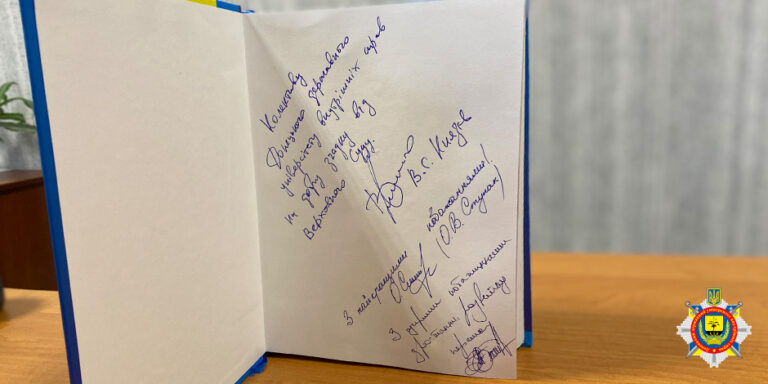 Колективу
Донецького державного
університету внутрішніх справ
на добру згадку від
Верховного Суду.
В.С. Князєв
З найкращими побажаннями!
(О.В. Ступак)
З щирими побажаннями